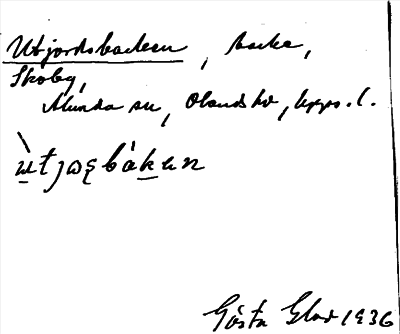 Utjordsbacken, backe,
Skoby,
Alunda sn, Olands hd, Upps. l.
ùtjoʂbákən
Gösta Glad 1936